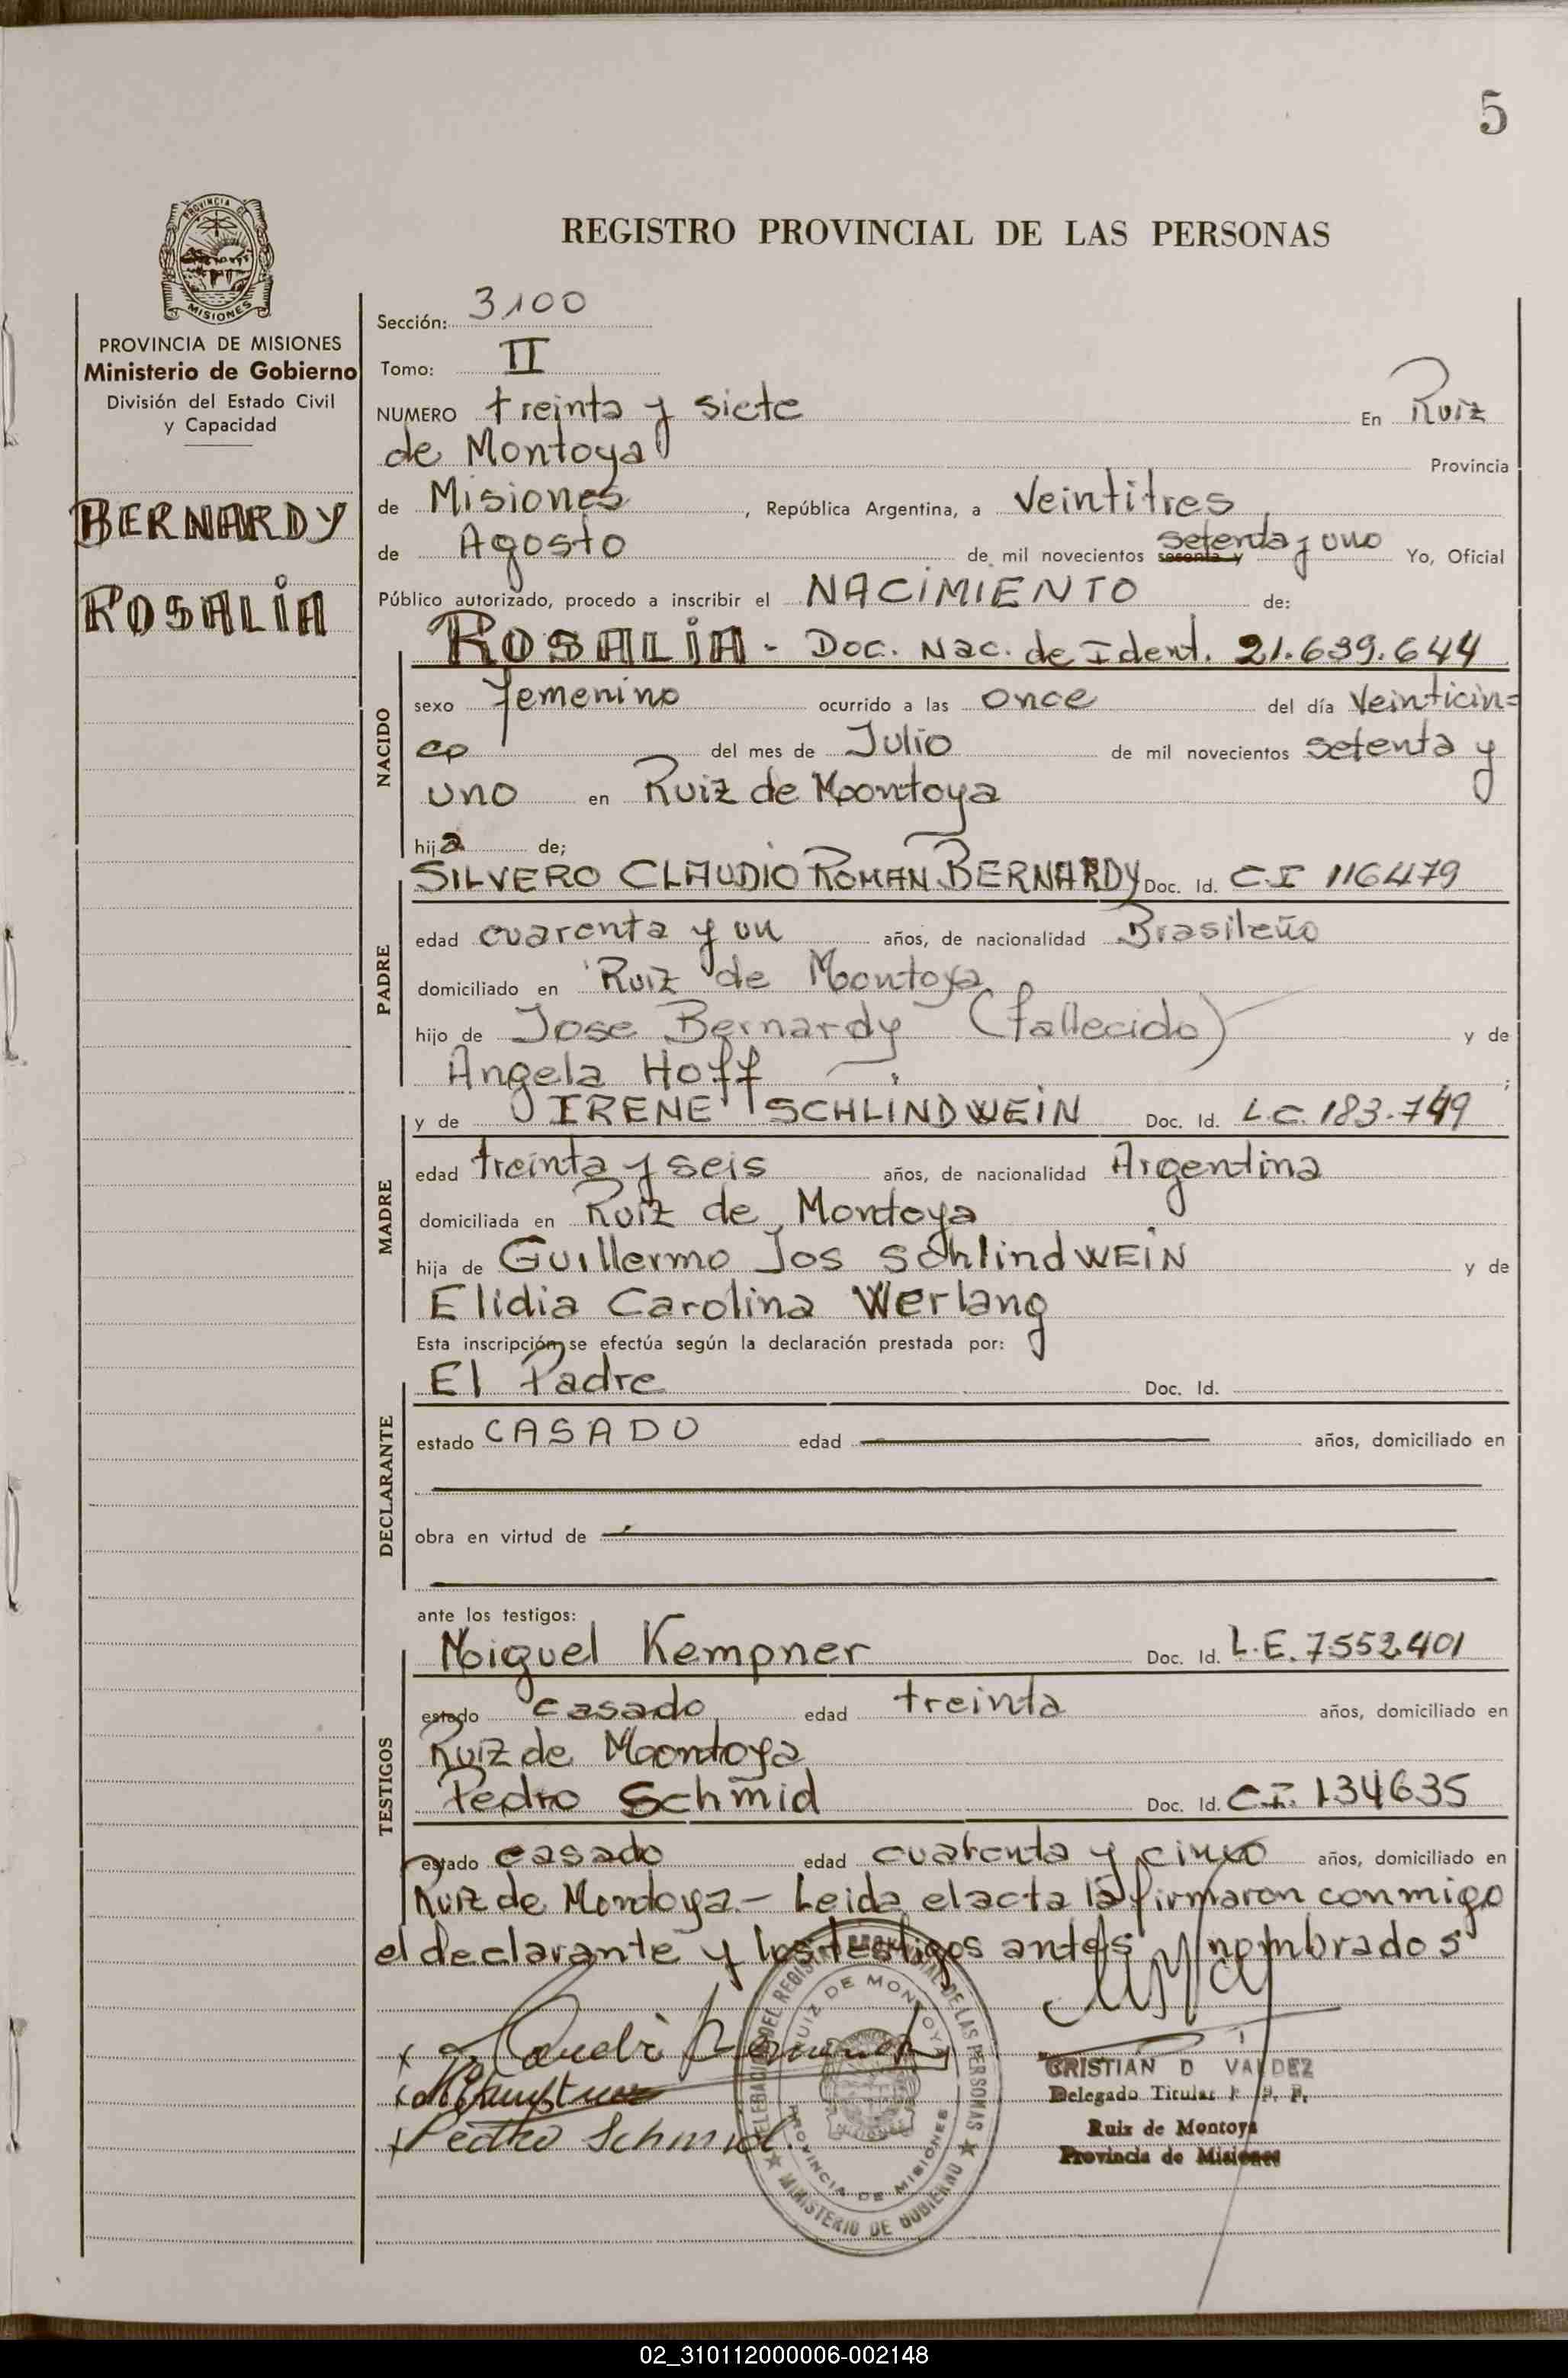 5
REGISTRO PROVINCIAL DE LAS PERSONAS
PROVINCIA DE MISIONES
Ministerio de Gobierno
División del Estado Civil
y Capacidad
BERNARDY
ROSALIA
Sección: 3100
Tomo: II
NUMERO treinta y siete En Ruiz
de Montoya Provincia
de Misiones, República Argentina, a Veintitres
de Agosto de mil novecientos sesenta y setenta y uno Yo, Oficial
Público autorizado, procedo a inscribir el NACIMIENTO de:
NACIDO
ROSALIA - Doc. Nac. de Ident. 21.639.644
sexo femenino ocurrido a las once del día Veinticin=
co del mes de Julio de mil novecientos setenta y
uno en Ruiz de Montoya
hija de;
PADRE
SILVERO CLAUDIO ROMAN BERNARDY Doc. Id. C.I 116479
edad cuarenta y un años, de nacionalidad Brasileño
domiciliado en Ruiz de Montoya
hijo de Jose Bernardy (fallecido) y de
Angela Hoff ;
MADRE
y de IRENE SCHLINDWEIN Doc. Id. L.C. 183.749
edad treinta y seis años, de nacionalidad Argentina
domiciliada en Ruiz de Montoya
hija de Guillermo Jos SchlindWEIN y de
Elidia Carolina Werlang
Esta inscripción se efectúa según la declaración prestada por:
DECLARANTE
El Padre Doc. Id.
estado CASADO edad años, domiciliado en
obra en virtud de
ante los testigos:
TESTIGOS
Miguel Kempner Doc. Id. L.E. 7552401
estado casado edad treinta años, domiciliado en
Ruiz de Montoya
Pedro Schmid Doc. Id. C.I. 134635
estado casado edad cuarenta y cinco años, domiciliado en
Ruiz de Montoya.- Leida el acta la firmaron conmigo
el declarante y los testigos antes nombrados
Pedro Schmid.
CRISTIAN D VALDEZ
Delegado Titular R. P. P.
Ruiz de Montoya
Provincia de Misiones
DELEGACION DEL REGISTRO PROVINCIAL DE LAS PERSONAS
RUIZ DE MONTOYA
PROVINCIA DE MISIONES
MINISTERIO DE GOBIERNO
02_310112000006-002148